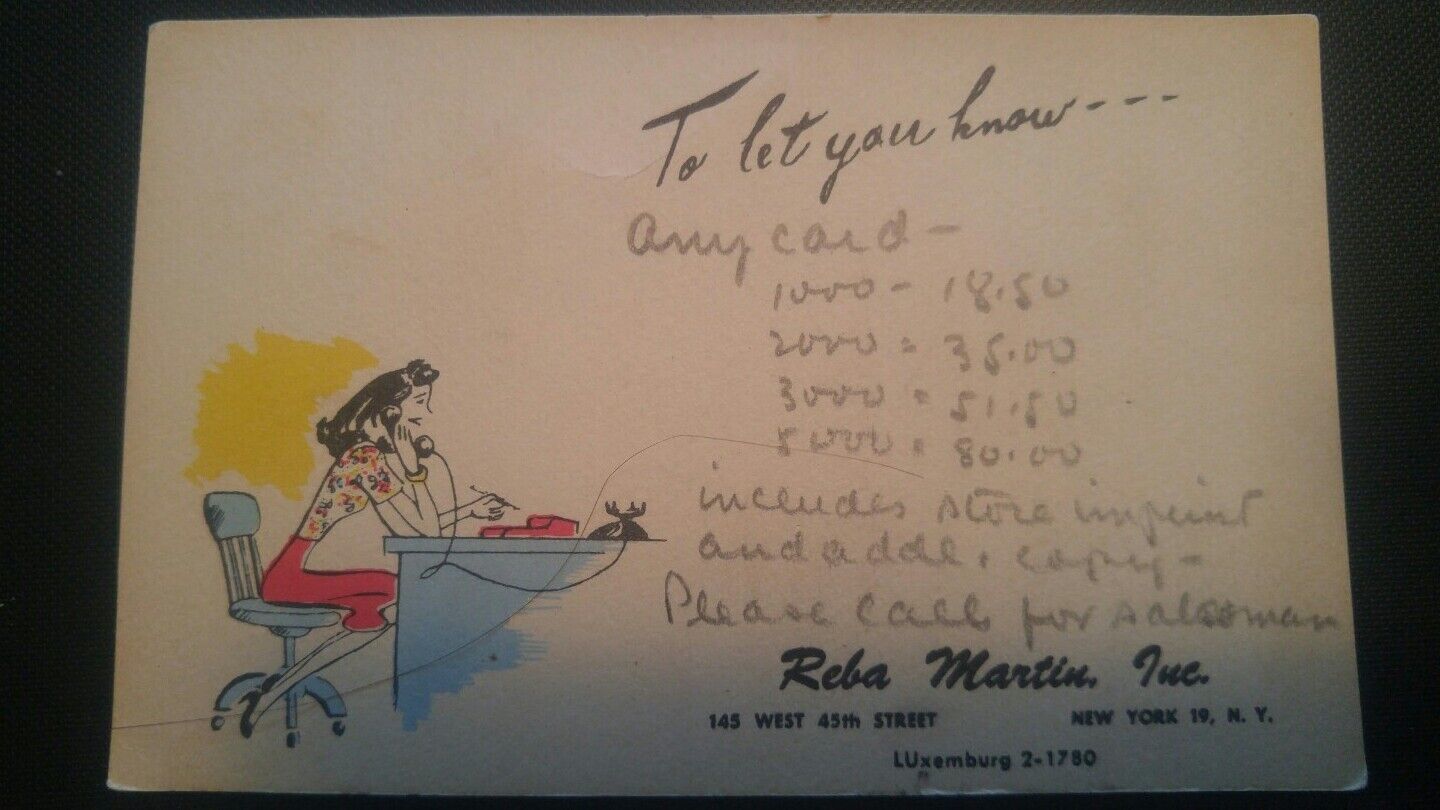 To let you know---
Any card -
1000 - 18.50
2000 = 35.00
3000 = 51.50
5000 = 80.00
includes store imprint
and addl. copy -
Please call for salesman
Reba Martin, Inc.
145 WEST 45th STREET NEW YORK 19, N. Y.
LUxemburg 2-1780